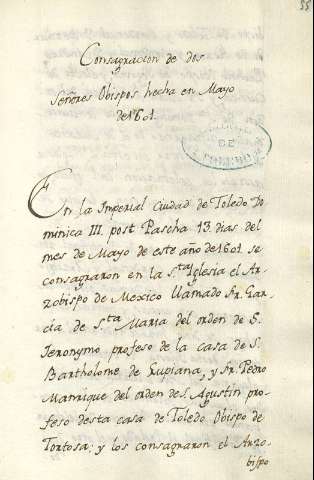 55
Consagracion de dos
Señores Obispos hecha en Mayo
de 1601.
DE
TOLEDO
En la Imperial Ciudad de Toledo Do
minica III. post Pascha 13. dias del
mes de Mayo de este año de 1601 se
consagraron en la S.ta Iglesia el Ar
zobispo de Mexico llamado Fr. Gar
cia de S.ta Maria del orden de S.
Jeronymo profeso de la casa de S.
Bartholome de Lupiana, y Fr. Pedro
Manrique del orden de S. Agustin pro
feso desta casa de Toledo Obispo de
Tortosa: y los consagraron el Arzo
bispo